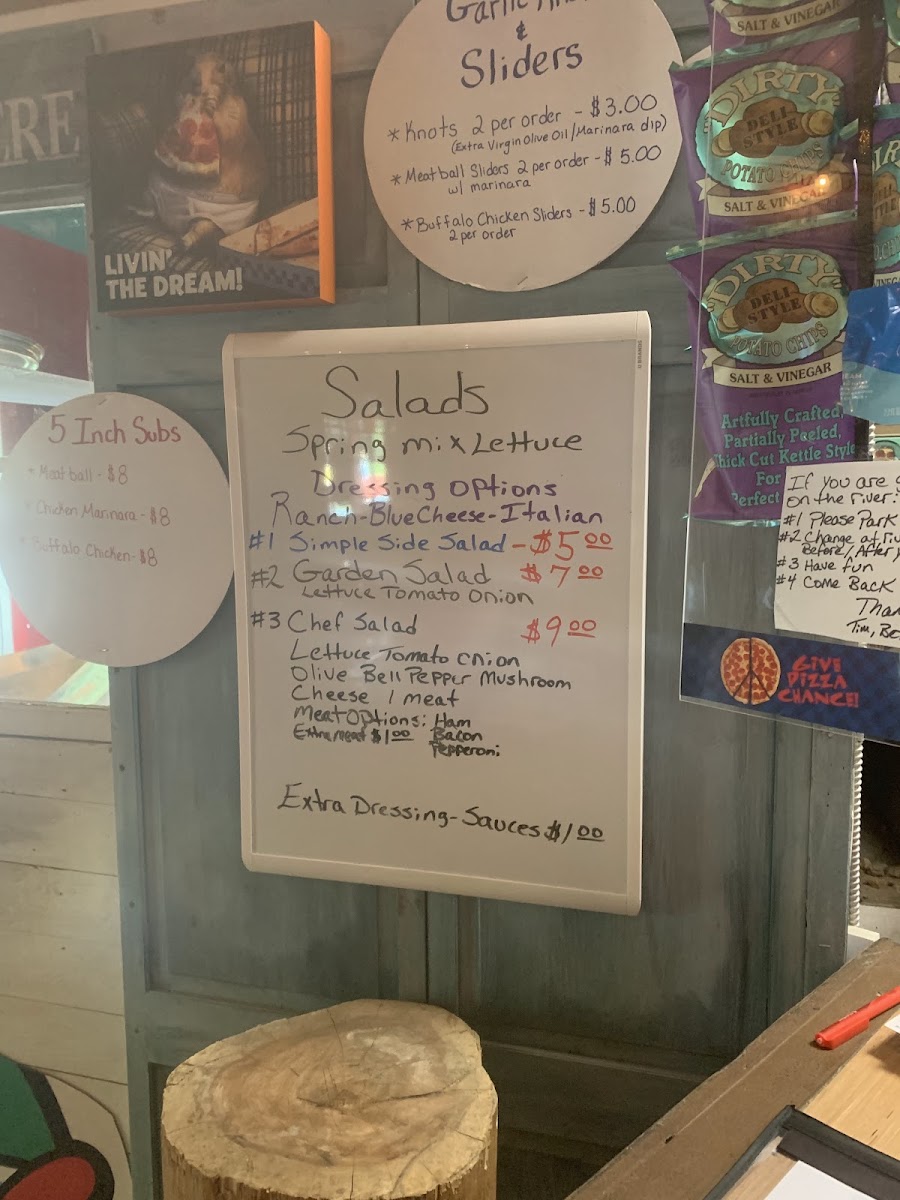 Garlic
&
Sliders
* Knots 2 per order - $3.00
(Extra Virgin Olive Oil/Marinara dip)
* Meatball Sliders 2 per order - $5.00
w/ marinara
* Buffalo Chicken Sliders - $5.00
2 per order
LIVIN'
THE DREAM!
5 Inch Subs
* Meatball - $8
* Chicken Marinara - $8
* Buffalo Chicken - $8
Salads
Spring mix Lettuce
Dressing Options
Ranch-BlueCheese-Italian
#1 Simple Side Salad - $5.00
#2 Garden Salad $7.00
Lettuce Tomato Onion
#3 Chef Salad $9.00
Lettuce Tomato Onion
Olive Bell Pepper Mushroom
Cheese 1 meat
Meat Options: Ham
Extra meat $1.00 Bacon
Pepperoni
Extra Dressing-Sauces $1.00
SALT & VINEGAR
DIRTY
DELI
STYLE
POTATO CHIPS
SALT & VINEGAR
DIRTY
DELI
STYLE
POTATO CHIPS
SALT & VINEGAR
Artfully Crafted,
Partially Peeled,
Thick Cut Kettle Style
For
Perfect
If you are
on the river:
#1 Please Park
#2 Change
Before/After
#3 Have fun
#4 Come Back
Tim,
GIVE
PIZZA
CHANCE!